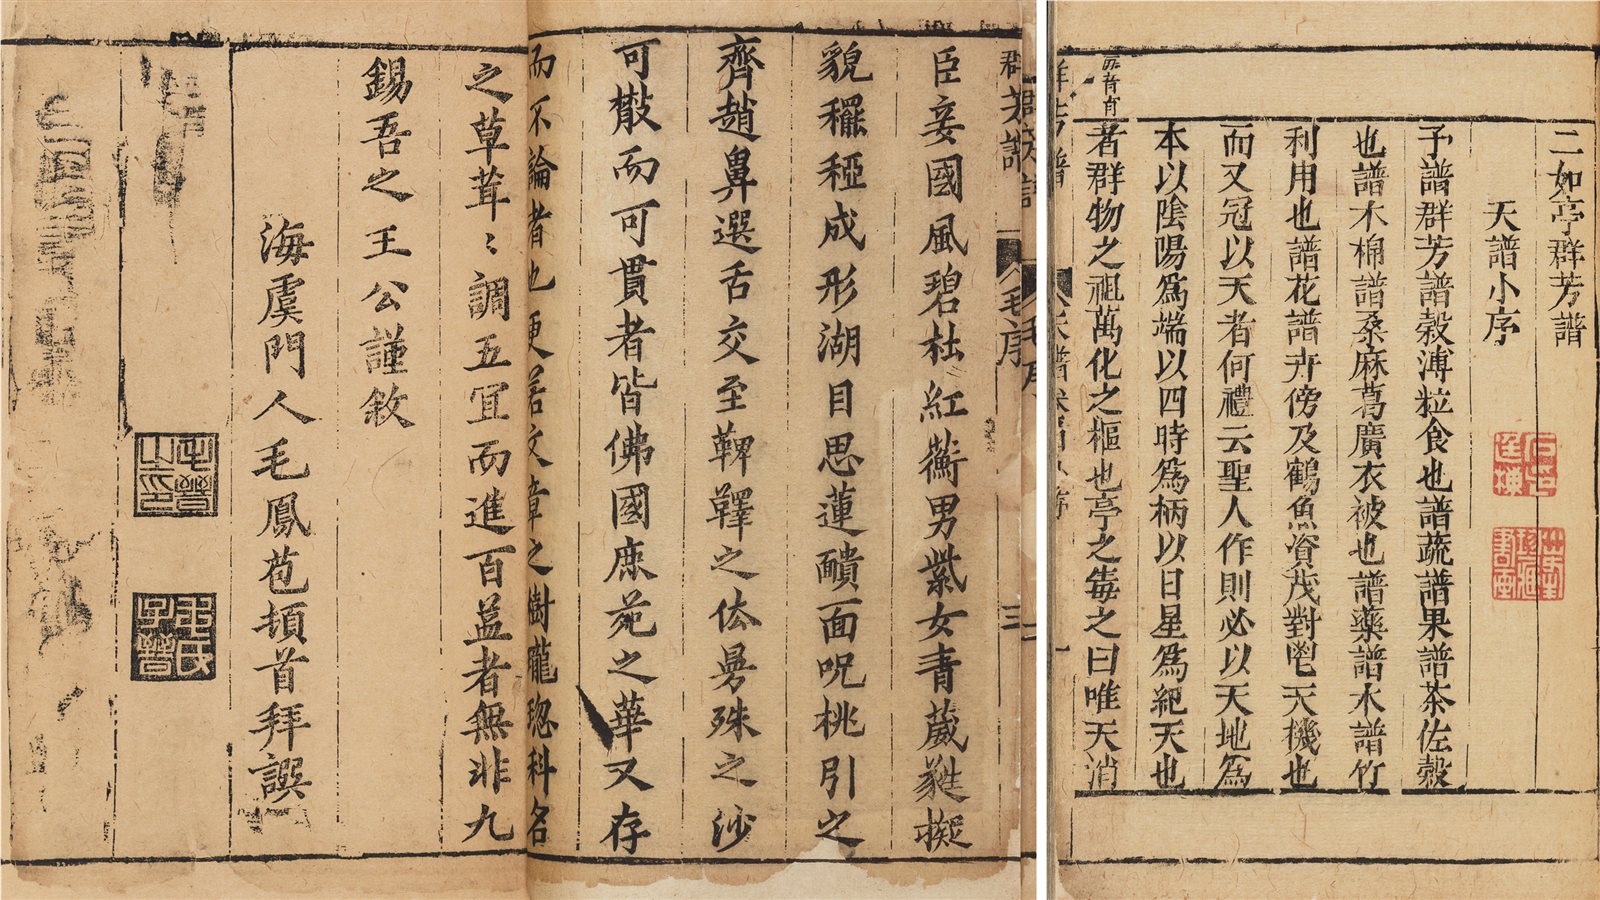 二如亭群芳譜
天譜小序
予譜群芳譜穀溥粒食也譜蔬譜果譜茶佐穀
也譜木棉譜桑麻葛廣衣被也譜藥譜木譜竹
利用也譜花譜卉傍及鶴魚資茂對鬯天機也
而又冠以天者何禮云聖人作則必以天地爲
本以陰陽爲端以四時爲柄以日星爲紀天也
者群物之祖萬化之樞也亭之毒之曰唯天消
群芳譜
毛序
三
臣妾國風碧杜紅蘅男紫女青葳蕤擬
貌穲稏成形湖目思蓮靧面呪桃引之
齊趙鼻選舌交至鞞鞸之殊之沙
可而可貫者皆佛國鹿苑之華又存
而不論者也更若文章之樹瓏璁科名
之草茸〻調五宜而進百益者無非九
錫吾之王公謹敘
海虞門人毛鳳苞頓首拜譔
毛晉之印
毛氏子晉